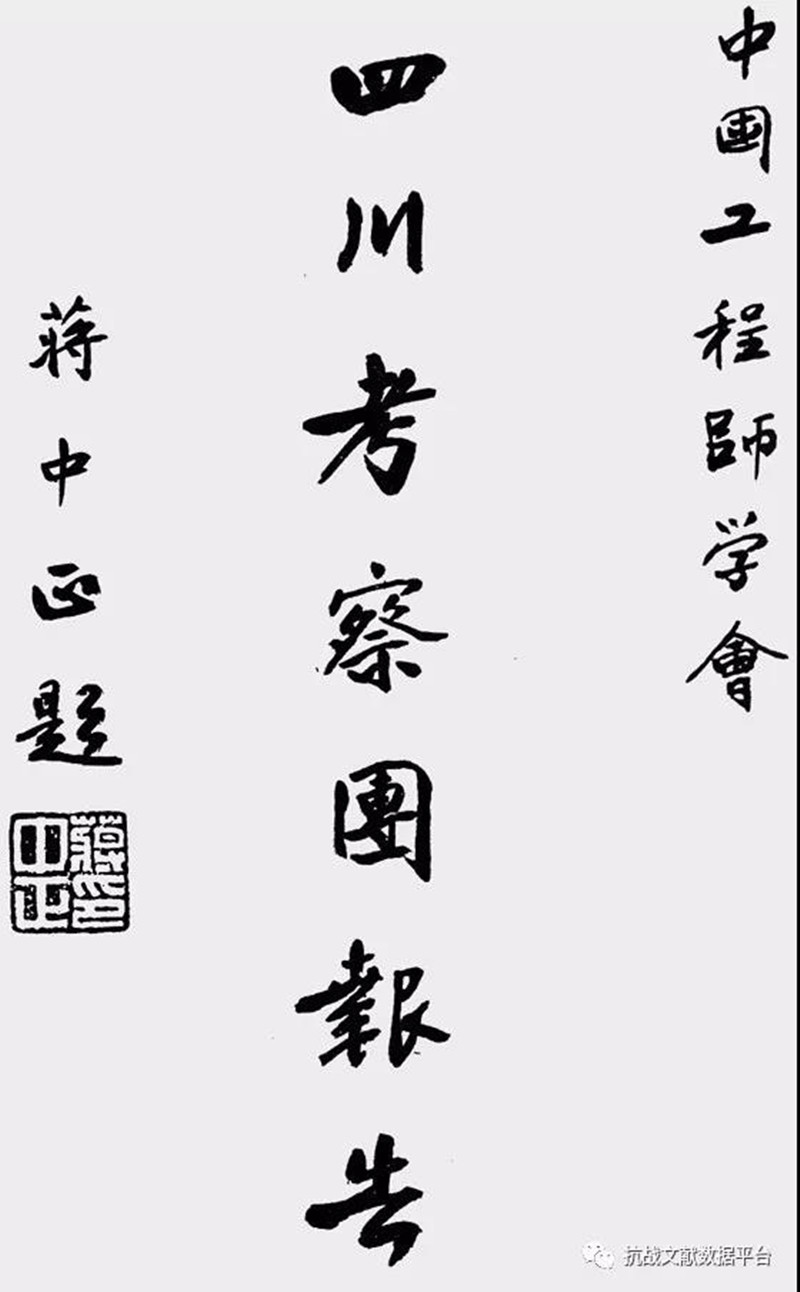 中國工程師学會
四川考察團報告
蔣中正題
蔣中正印
抗战文献数据平台